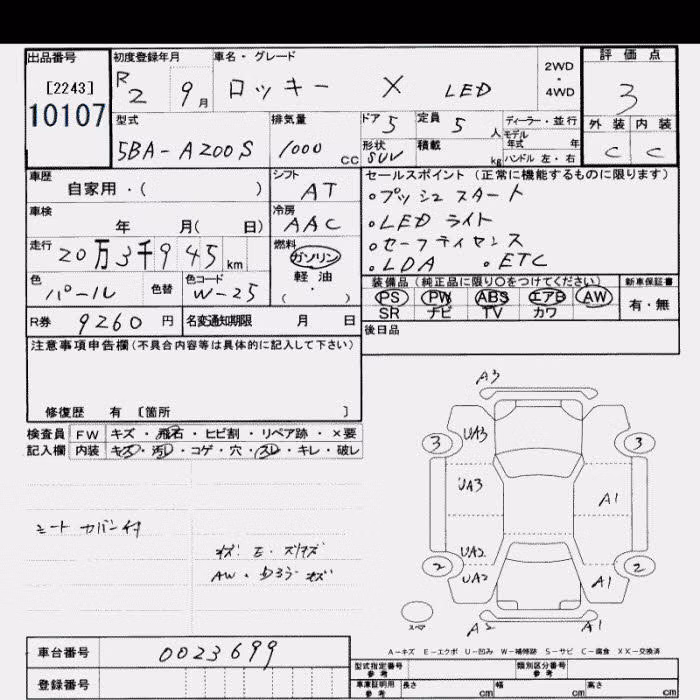 出品番号
[2243]
10107
初度登録年月
R2 9月
車名・グレード
ロッキー X LED
2WD
・
4WD
評価点
3
外装 内装
C C
型式
5BA-A200S
排気量
1000 CC
ドア 5
定員 5 人
形状 SUV
積載 kg
ディーラー・並行
モデル年式 年
ハンドル 左・右
車歴
自家用・( )
シフト
AT
車検
年 月( 日)
冷房
AAC
走行
20万3千945km
燃料
ガソリン
軽・油
・
( )
色
パール
色替
色コード
W-25
R券 9260 円
名変通知期限 月 日
セールスポイント (正常に機能するものに限ります)
・プッシュスタート
・LEDライト
・セーフティセンス
・LDA ・ETC
装備品 (純正品に限り〇をつけてください)
PS PW ABS エアB AW
SR ナビ TV カワ
新車保証書
有・無
後日品
注意事項申告欄(不具合内容等は具体的に記入して下さい)
修復歴 有 [箇所 ]
検査員 FW キズ・飛石・ヒビ割・リペア跡・×要
記入欄 内装 キズ・汚レ・コゲ・穴・スレ・キレ・破レ
シートカバー付
AW
A3
UA3
3 3
UA3
A1
UA2
2 2
UA2
A1
スペア
A2 A1
A-キズ E-エクボ U-凹み W-補修跡 S-サビ C-腐食 XX-交換済
車台番号 0023699
登録番号
型式指定番号 参考
類別区分番号 参考
車庫証明用 参考 長さ cm 幅 cm 高さ cm